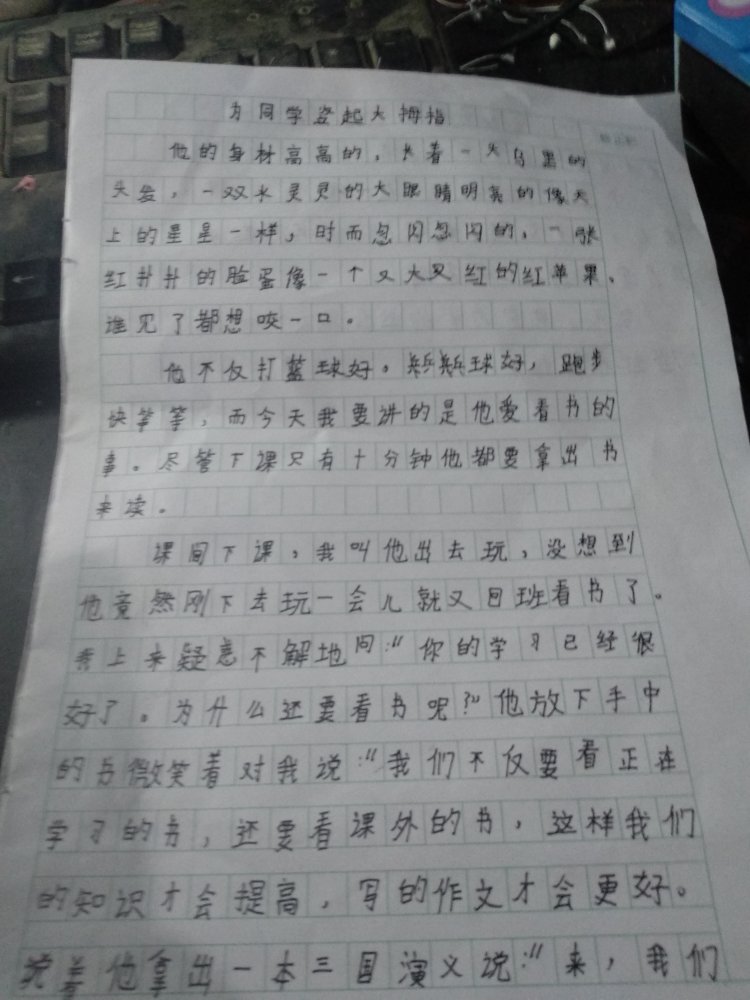 为同学竖起大拇指
他的身材高高的，长着一头乌黑的
头发，一双水灵灵的大眼睛明亮的像天
上的星星一样，时而忽闪忽闪的，一张
红扑扑的脸蛋像一个又大又红的红苹果。
谁见了都想咬一口。
他不仅打篮球好。乒乓乒乓球好，跑步
快等等，而今天我要讲的是他爱看书的
事。尽管下课只有十分钟他都要拿出书
来读。
课间下课，我叫他出去玩，没想到
他竟然刚下去玩一会儿就又回班看书了。
我上来疑惑不解地问："你的学习已经很
好了。为什么还要看书呢？"他放下手中
的书微笑着对我说："我们不仅要看正在
学习的书，还要看课外的书，这样我们
的知识才会提高，写的作文才会更好。
说着他拿出一本三国演义说："来，我们